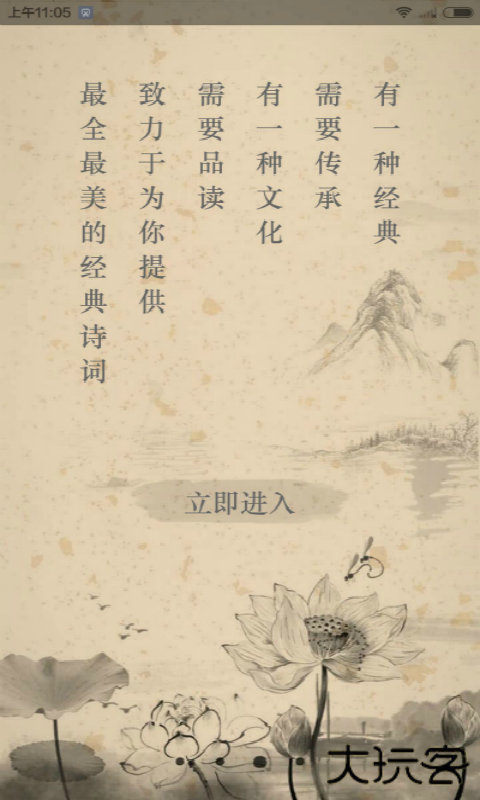 上午11:05
有一种经典
需要传承
有一种文化
需要品读
致力于为你提供
最全最美的经典诗词
立即进入
大玩客